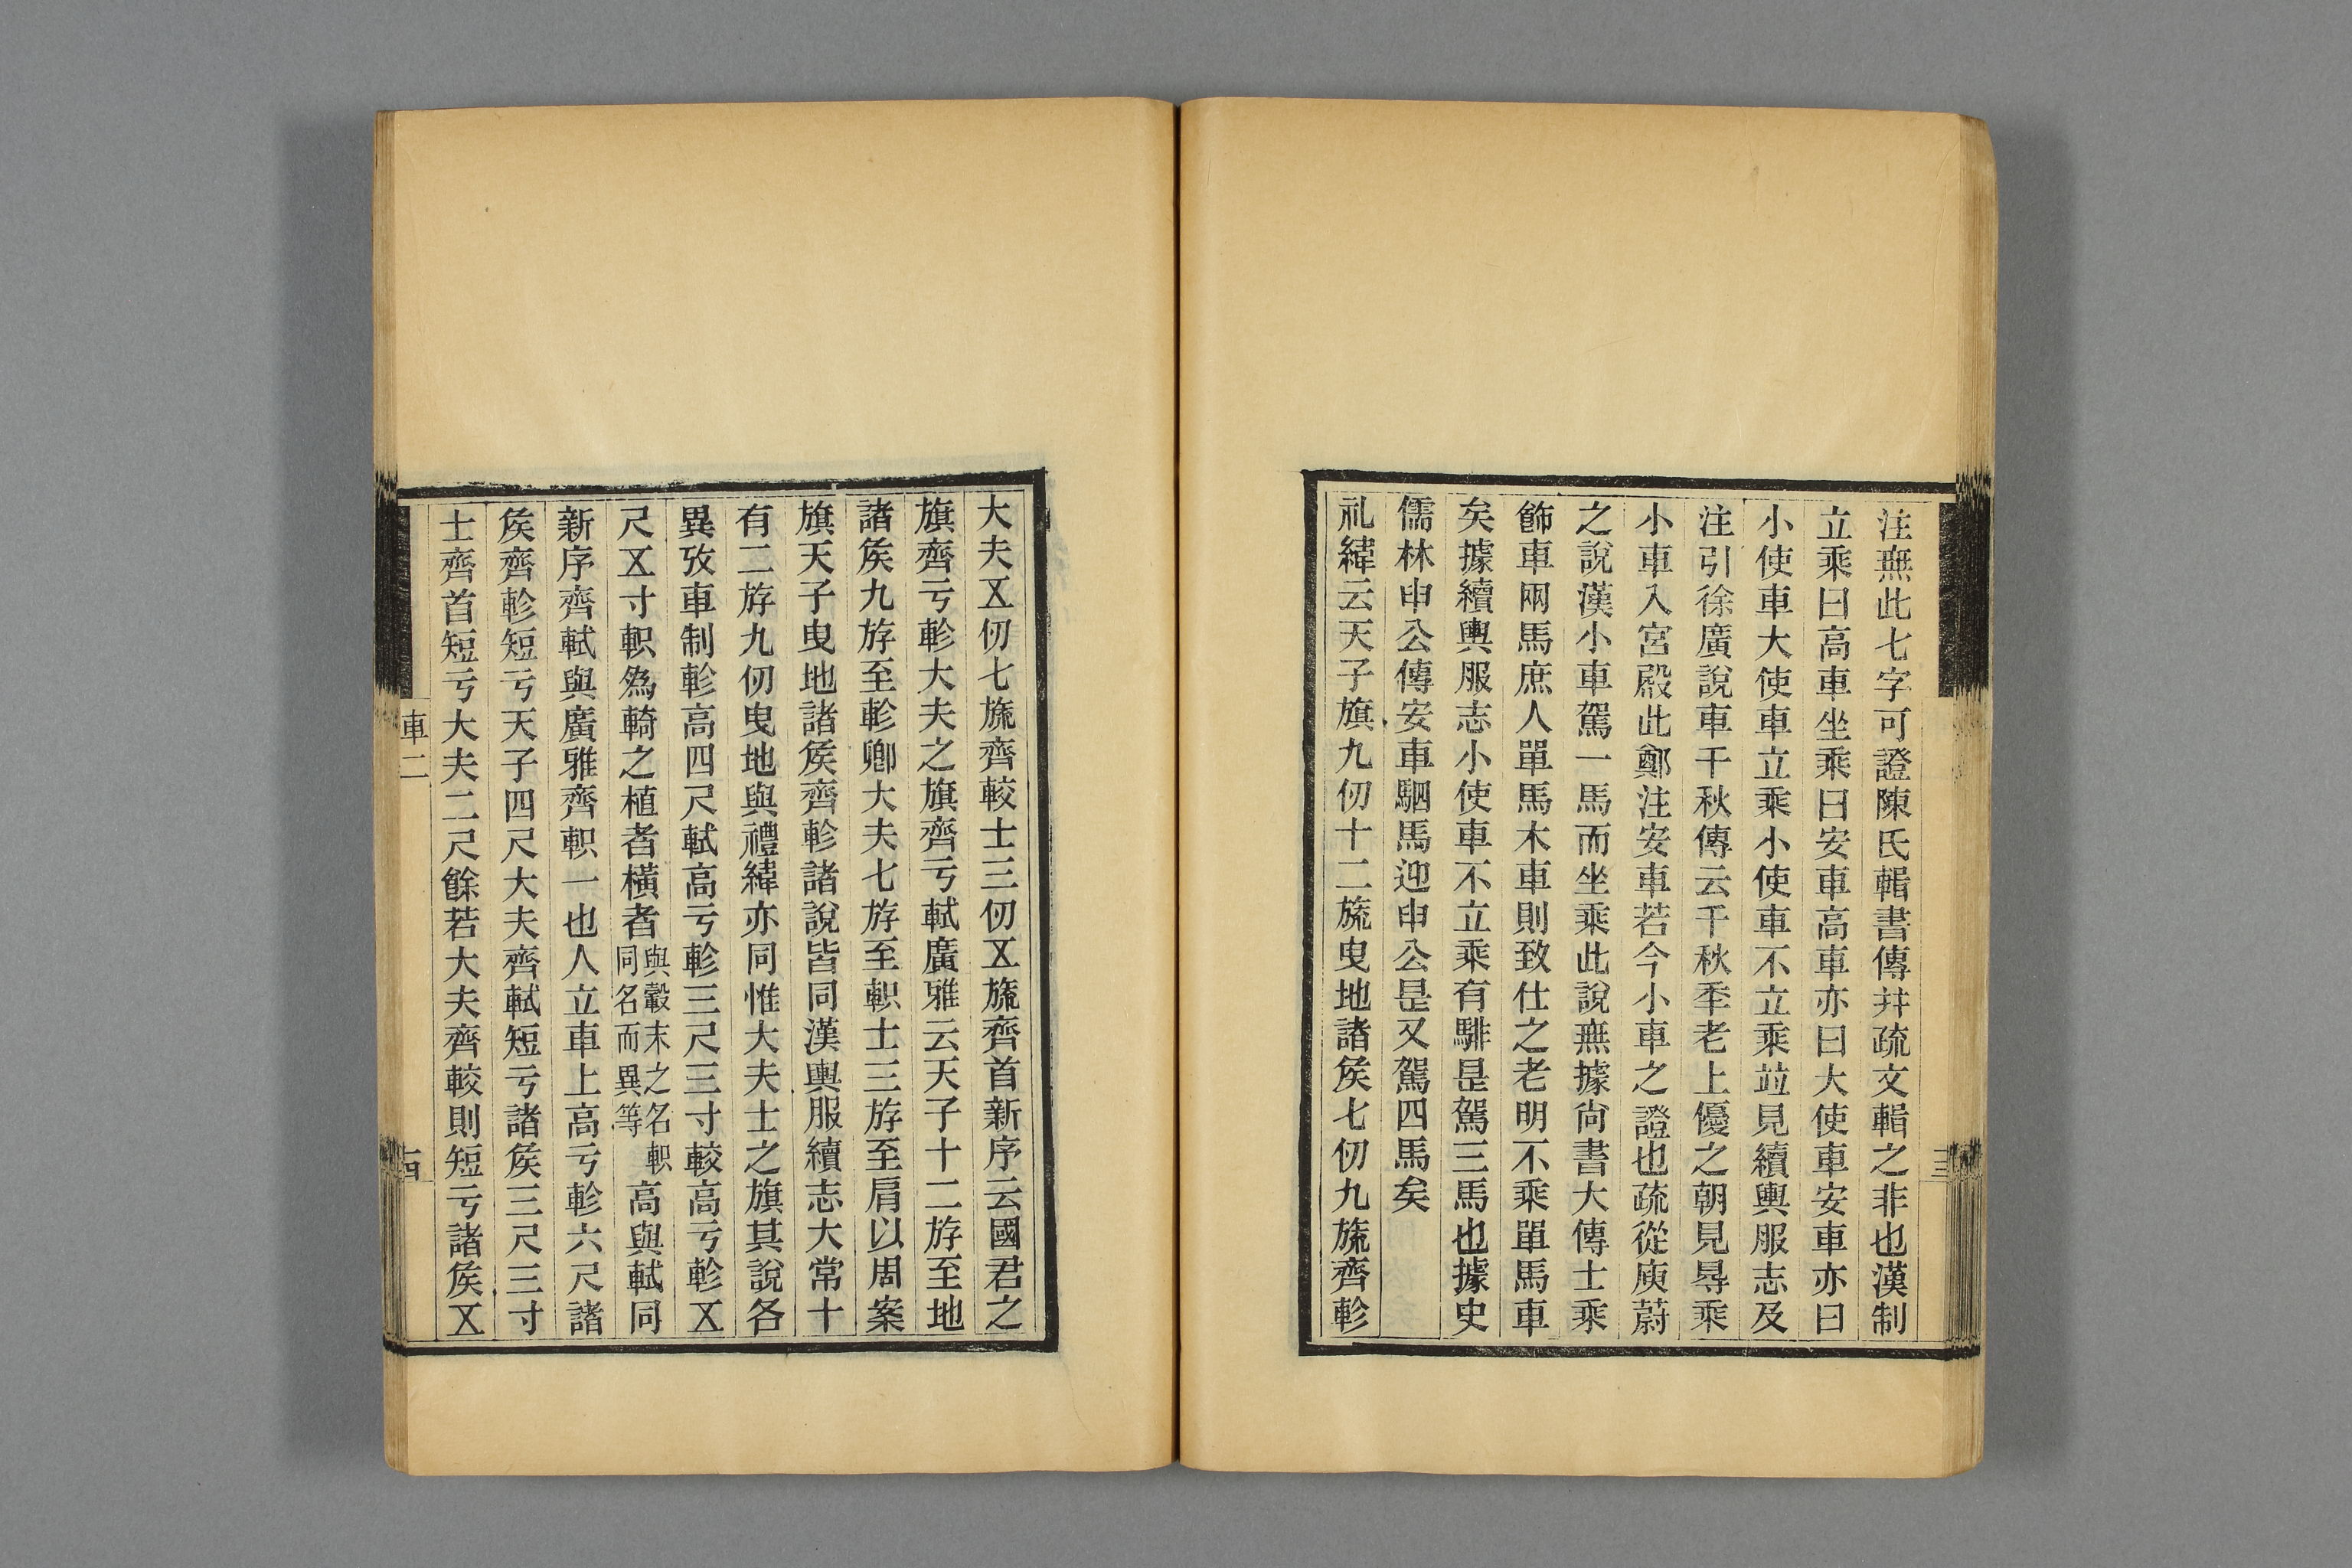 注無此七字可證陳氏輯書傳幷疏文輯之非也漢制
立乘曰高車坐乘曰安車高車亦曰大使車安車亦曰
小使車大使車立乘小使車不立乘竝見續輿服志及
注引徐廣說車千秋傳云千秋秊老上優之朝見㝵乘
小車入宮殿此鄭注安車若今小車之證也疏從庾蔚
之說漢小車駕一馬而坐乘此說無據尙書大傳士乘
飾車兩馬庶人單馬木車則致仕之老明不乘單馬車
矣據續輿服志小使車不立乘有騑是駕三馬也據史
儒林申公傳安車駟馬迎申公是又駕四馬矣
礼緯云天子旗九仞十二旒曳地諸矦七仞九旒齊軫
大夫㐅仞七旒齊較士三仞㐅旒齊首新序云國君之
旗齊亏軫大夫之旗齊亏軾廣雅云天子十二斿至地
諸矦九斿至軫卿大夫七斿至軹士三斿至肩以周案
旗天子曳地諸矦齊軫諸說皆同漢輿服續志大常十
有二斿九仞曳地與禮緯亦同惟大夫士之旗其說各
異攷車制軫高四尺軾高亏軫三尺三寸較高亏軫㐅
尺㐅寸軹為輢之植者橫者與轂末之名軹同名而異等高與軾同
新序齊軾與廣雅齊軹一也人立車上高亏軫六尺諸
矦齊軫短亏天子四尺大夫齊軾短亏諸矦三尺三寸
士齊首短亏大夫二尺餘若大夫齊較則短亏諸矦㐅
車二
十四